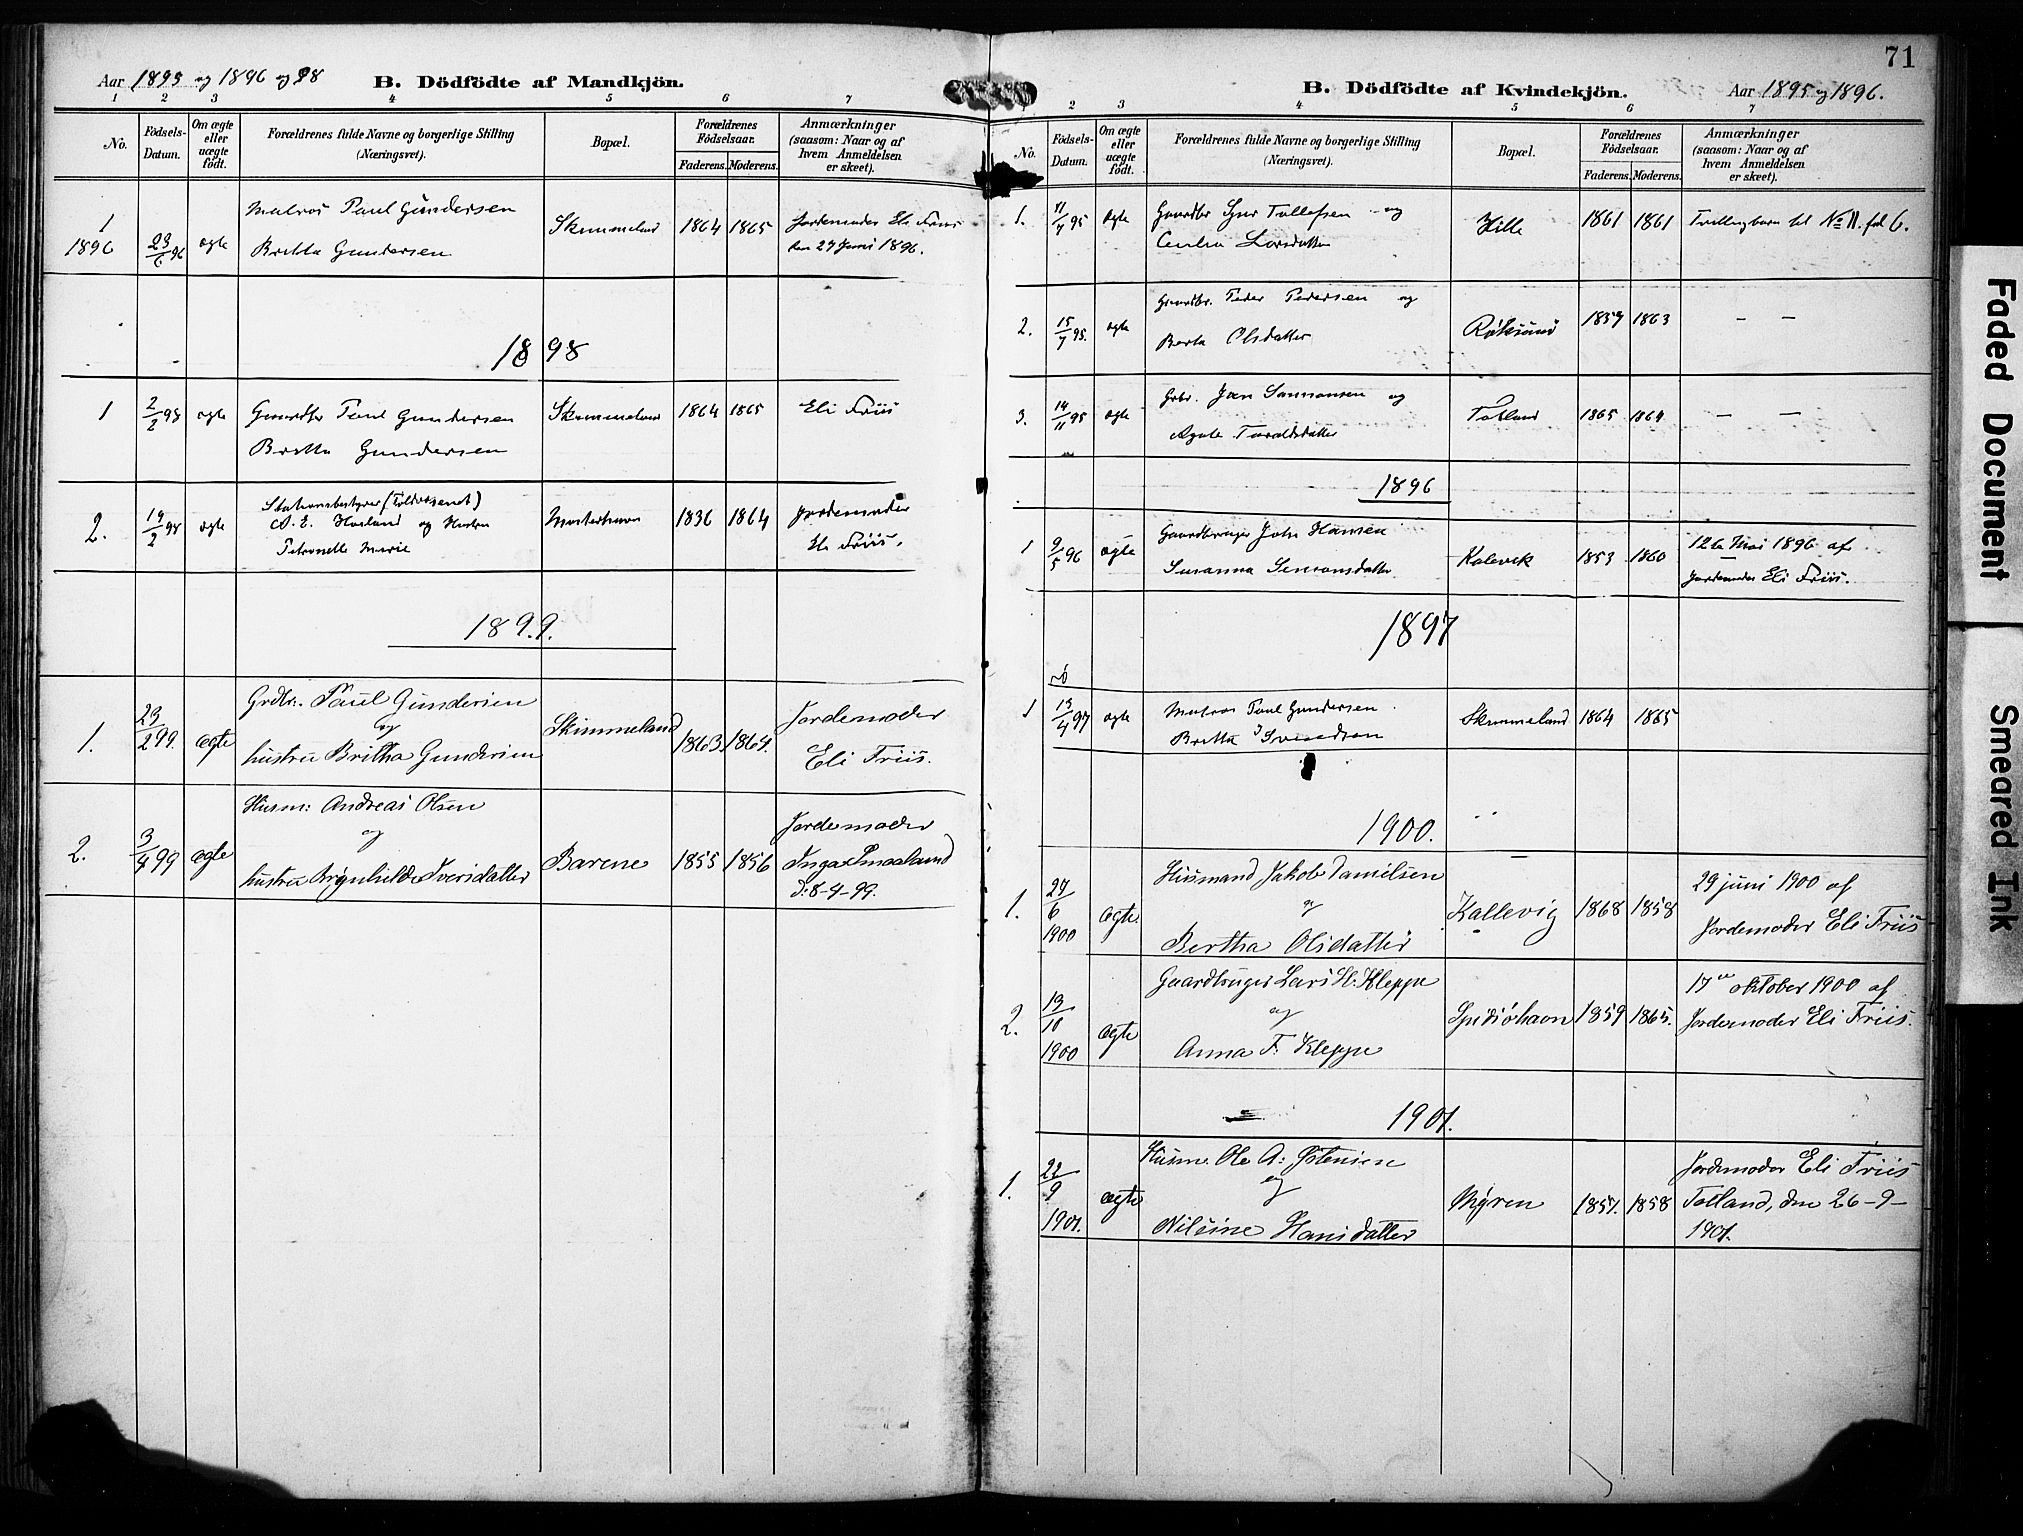 Aar 1895 og 1896 og 98
B. Dödfödte af Mandkjön.
1 2 3 4 5 6 7
No.
Födsels-
Datum.
Om ægte
eller
uægte
födt.
Forældrenes fulde Navne og borgerlige Stilling
(Næringsvei).
Bopæl.
Forældrenes
Födselsaar.
Faderens. Moderens.
Anmærkninger
(saasom: Naar og af
hvem Anmeldelsen
er skeet).
1
1896
23/6 96
ægte
Matros Paul Gundersen
Britta Gundersen
Skimmeland
1864
1865
Jordemoder Eli Friis
den 27 Juni 1896.
1898
1
2/2 98
ægte
Gaardbr Paul Gundersen
Britta Gundersen
Skimmeland
1864
1865
Eli Friis
2.
19/2 98
ægte
Stationsbestyrer (Toldvæsenet)
E. Hovland og Hustru
Petronelle Marie
Mosterhavn
1836
1864
Jordemoder
Eli Friis.
1899.
1.
23/2 99.
ægte
Grdbr. Paul Gundersen
og
hustru Britha Gundersen
Skimmeland
1863
1864.
Jordemoder
Eli Friis.
2.
3/4 99
ægte
Husm: Andreas Olsen
og
hustru Brynhilde Iversdatter
Barene
1855
1856
Jordemoder
Inga
d: 8-4-99.
71
B. Dödfödte af Kvindekjön.
Aar 1895 og 1896.
2 3 4 5 6 7
No.
Födsels-
Datum.
Om ægte
eller
uægte
födt.
Forældrenes fulde Navne og borgerlige Stilling
(Næringsvei).
Bopæl.
Forældrenes
Födselsaar.
Faderens. Moderens.
Anmærkninger
(saasom: Naar og af
hvem Anmeldelsen
er skeet).
1.
11/7 95
ægte
Gaardbr Tollefsen og
Larsdatter
Hille
1861
1861
Tvillingbarn til No 11. fol 6.
2.
15/7 95.
ægte
Gaardbr. Peder Pedersen og
Berta Olsdatter
Røksund
1857
1863
— —
3.
14/11 95
ægte
Grbr. og
Agate Taraldsdatter
Totland
1865
1864
— —
1896
1
9/5 96
ægte
Gaardbruger John Hansen
Susanna Simonsdatter
Kalevik
1853
1860
12te Mai 1896 af
Jordemoder Eli Friis.
1897
1
13/4 97
ægte
Matros Paul Gundersen
Britta
Skimmeland
1864
1865
1900.
1.
27/6
1900
ægte
Husmand Jakob Danielsen
og
Bertha Olsdatter
Kallevig
1868
1858
29 juni 1900 af
Jordemoder Eli Friis
2.
13/10
1900
ægte
Gaardbruger Lars H. Kleppe
og
Anna F. Kleppe
1859
1865.
17de oktober 1900 af
Jordemoder Eli Friis.
1901.
1.
22/9
1901.
ægte
Husm. Ole A. Østensen
og
Nilsine Hansdatter
Myren
1857.
1858
Jordemoder Eli Friis
Totland, den 26-9-
1901.
Faded Document
Smeared Ink